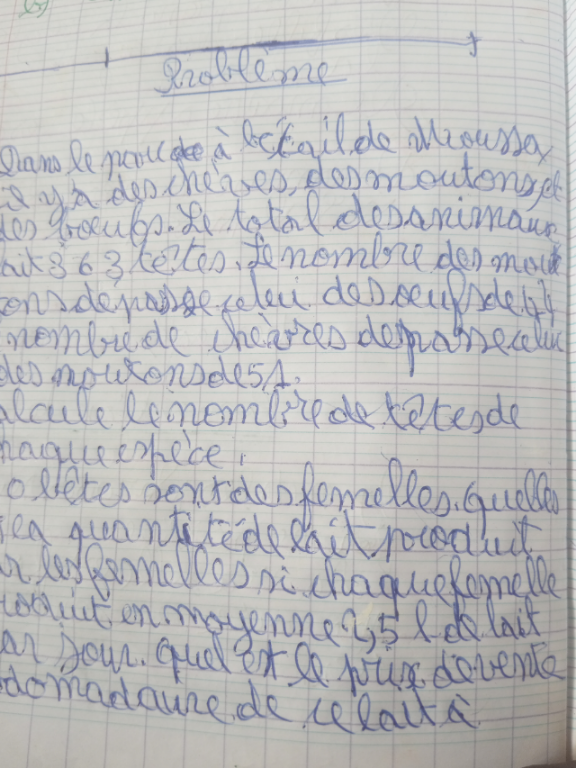 Problème
Dans le parc à bétail de Moussa,
il y a des chèvres, des moutons, et
des boeufs. Le total des animaux
ait 363 têtes. Le nombre des mou
ons dépasse celui des oeufs de 44
nombre de chèvres dépasse celui
des moutons de 51.
lcule le nombre de têtes de
haque espèce.
0 bêtes sont des femelles. quelles
la quantité de lait produit
ar les femelles si chaque femelle
roduit en moyenne 2,5 l de lait
ar jour. quel est le prix de vente
domadaire de ce lait à